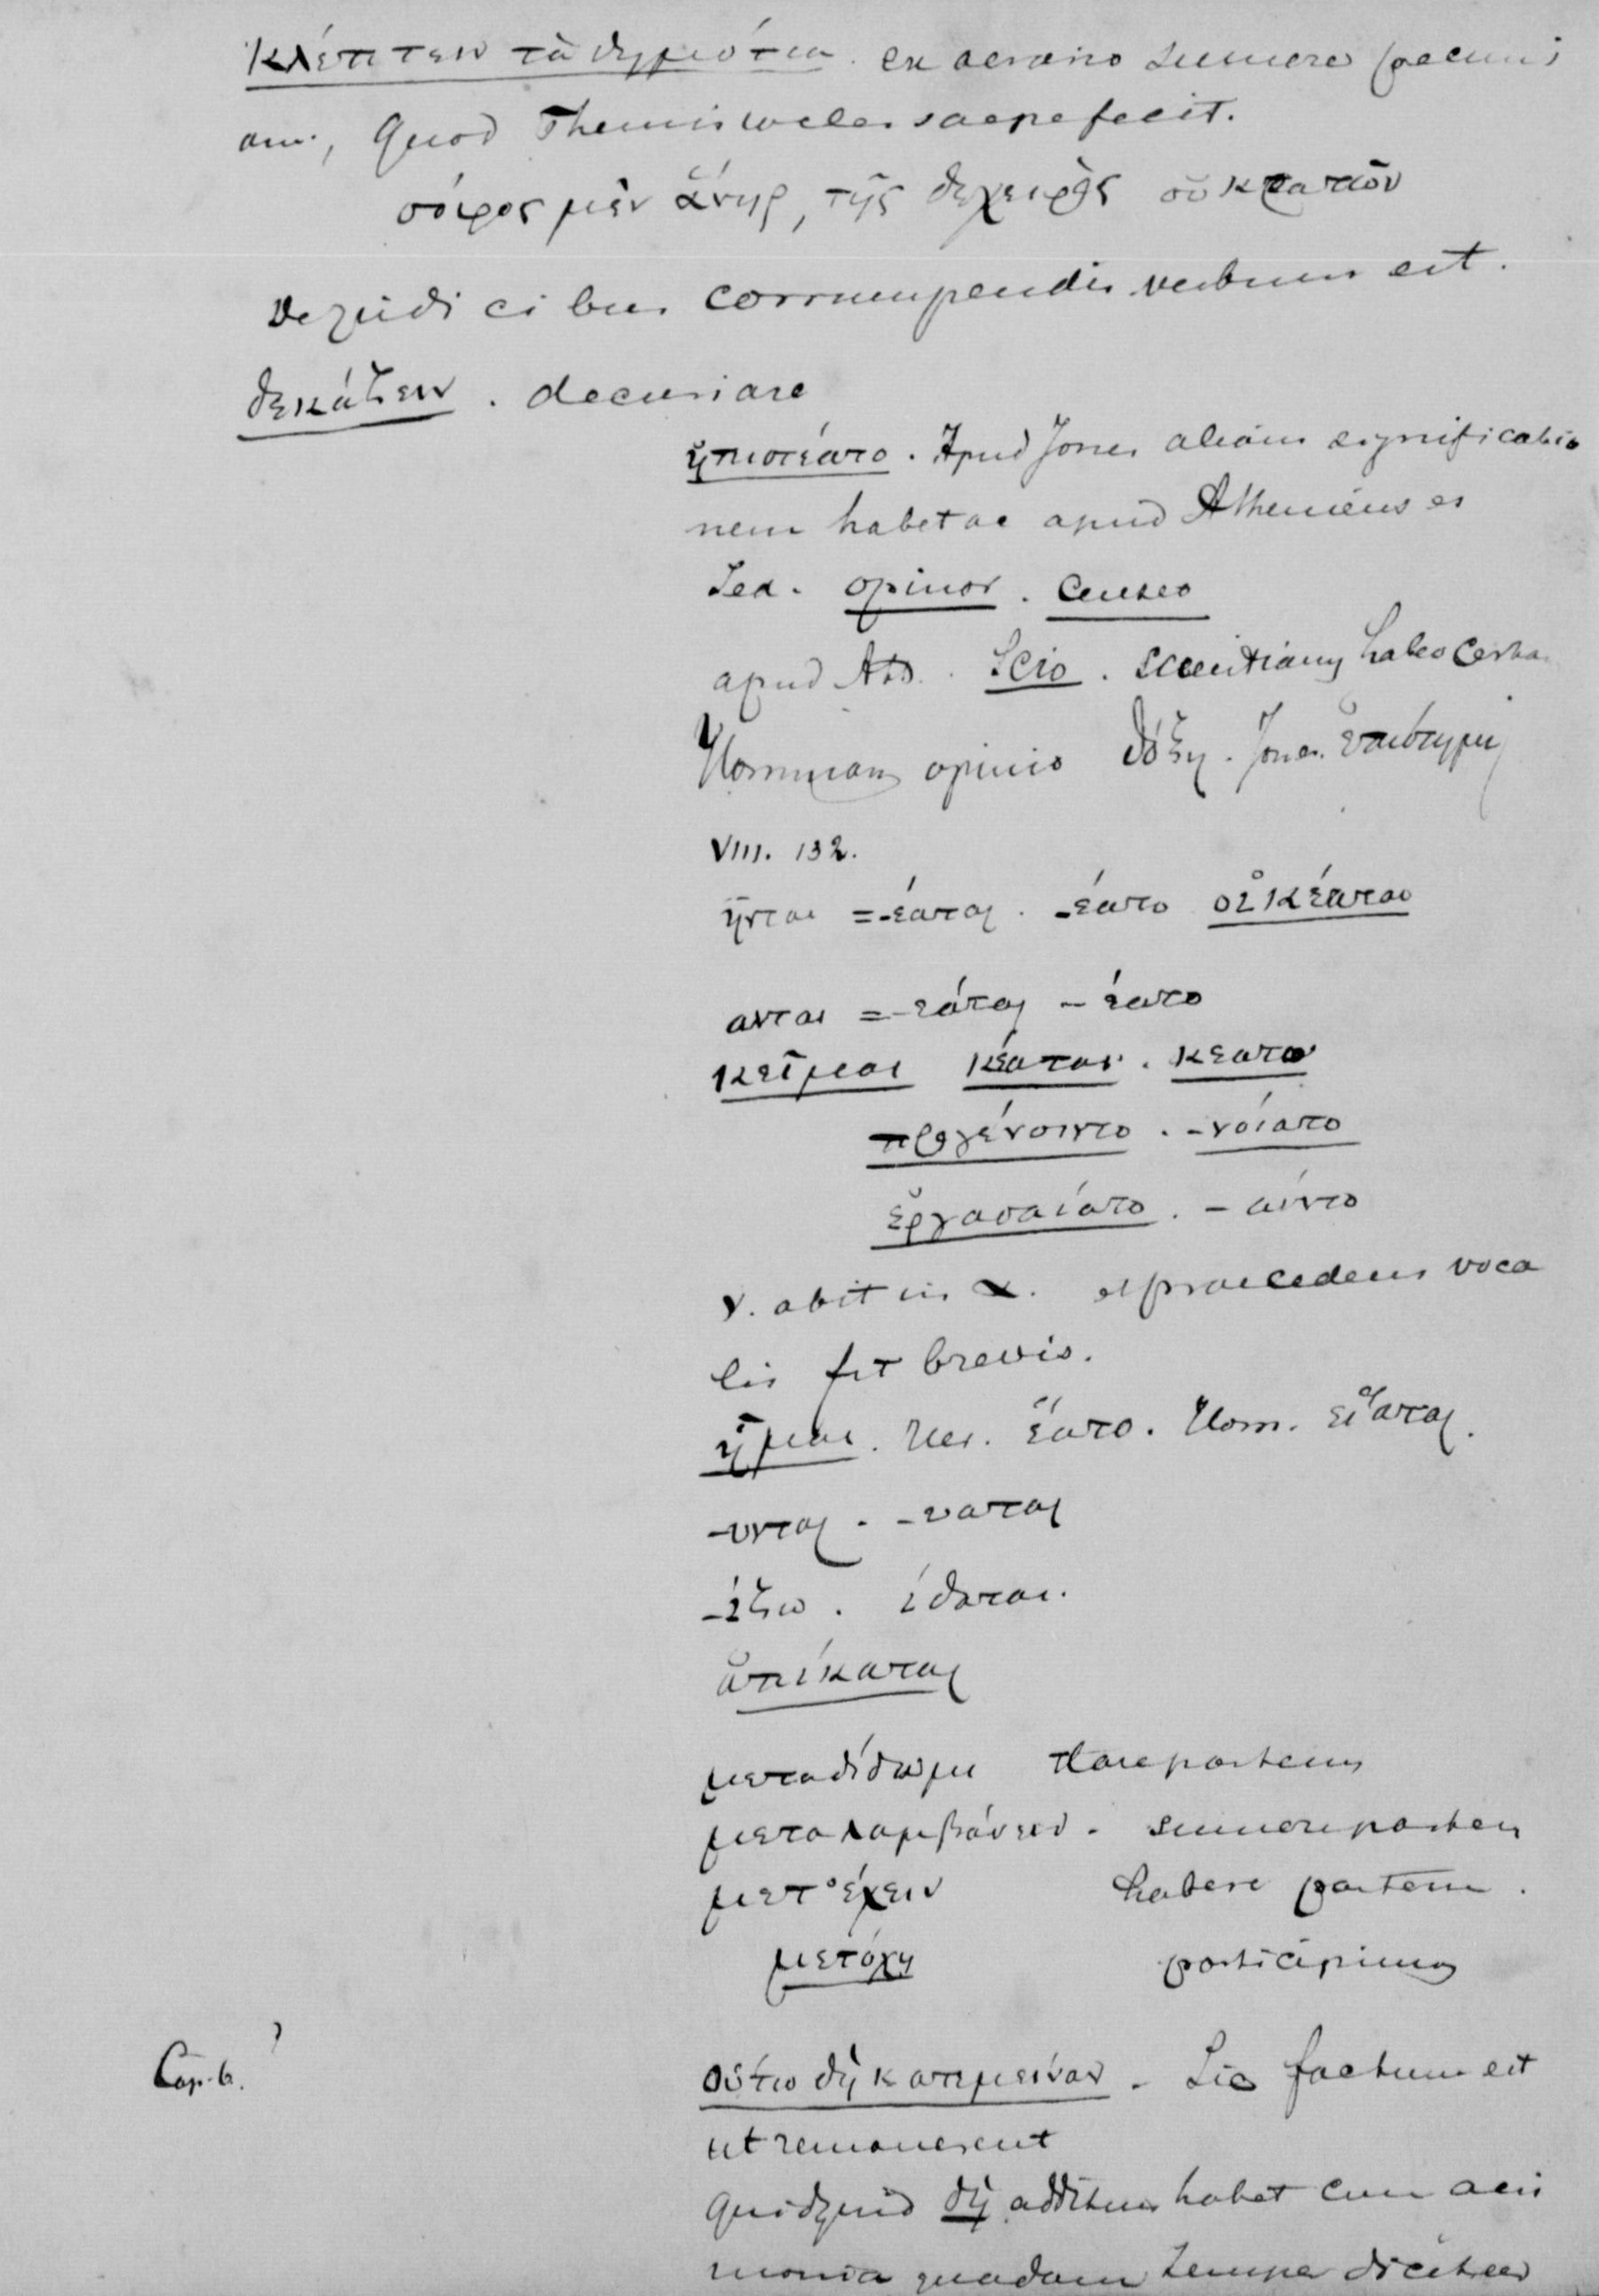 κλέπτειν τὰ δημόσια. ex aerario sumere pecuni
am, Quod Themistocles saepe fecit.
σόφος μὲν ἄνηρ, τῆς δὲ χειρὸς οὐ κρατῶν
De judicibus corrumpendis verbum est.
δεκάζειν. decuriare
ἠπιστέατο. Apud Jones aliam significatio
nem habet ac apud Athenienses
Sed. opinor. Censeo
apud Att. Scio. scientiam habeo certam
Normam opinio δόξη. Jones. ἐπιστήμη
VIII. 132.
ηνται = -έαται. -έατο οἰκέαται
ανται = -έαται -έατο
κεῖμαι κέαται. κέατο
προγένοιντο. -νοίατο
ἐργασαίατο. -αιντο
ν. abit in α. et praecedens voca
lis fit brevis.
ἧμαι. Her. ἕατο. Hom. εἵαται.
-υνται. -υαται
-ίζω. ίδαται.
ἀπίκαται
μεταδίδωμι dare partem
μεταλαμβάνειν. sumere partem
μετ᾽έχειν habere partem.
μετόχη participium
Cap. 6. οὕτω δὴ κατέμειναν. Sic factum est
ut remanerent
Quidquid δὴ additum habet cum acri
monia quadam semper dicitur